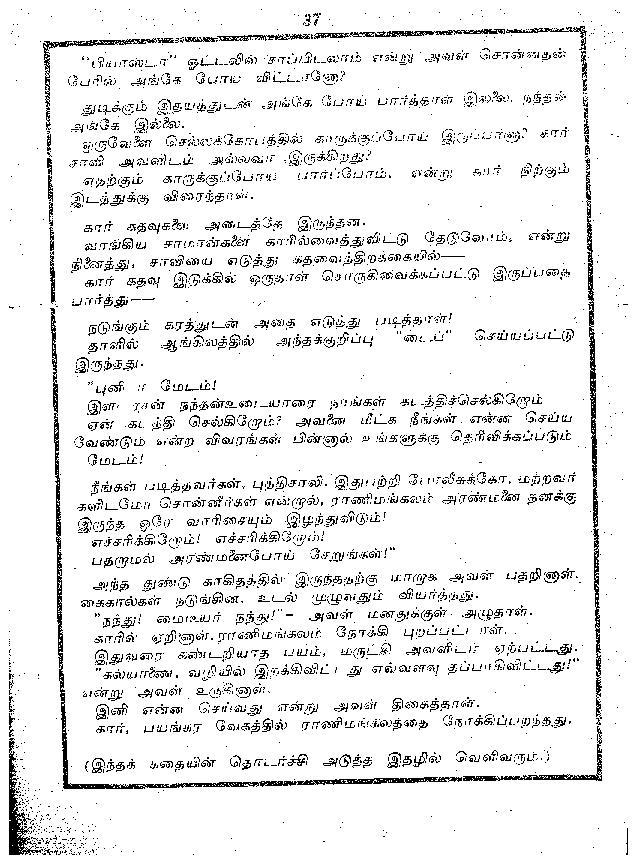 37
"பியாஸ்டா" ஓட்டலில் சாப்பிடலாம் என்று அவள் சொன்னதன்
பேரில் அங்கே போய் விட்டானோ?
துடிக்கும் இதயத்துடன் அங்கே போய் பார்த்தாள் இல்லை. நந்தன்
அங்கே இல்லை.
ஒருவேளை செல்லக்கோபத்தில் காருக்குப்போய் இருப்பானோ? கார்
சாவி அவளிடம் அல்லவா இருக்கிறது?
எதற்கும் காருக்குப்போய் பார்ப்போம், என்று கார் நிற்கும்
இடத்துக்கு விரைந்தாள்.
கார் கதவுகளை அடைத்தே இருந்தன.
வாங்கிய சாமான்களை காரில்வைத்துவிட்டு தேடுவோம், என்று
நினைத்து, சாவியை எடுத்து கதவைந்திறக்கையில்—
கார் கதவு இடுக்கில் ஒருதாள் சொருகிவைக்கப்பட்டு இருப்பதை
பார்த்து——
நடுங்கும் கரத்துடன் அதை எடுத்து படித்தாள்!
தாளில் ஆங்கிலத்தில் அந்தக்குறிப்பு "டைப்" செய்யப்பட்டு
இருந்தது.
மேடம்!
நந்தன்உடையாரை நாங்கள் கடத்திச்செல்கிறோம்
ஏன் கடத்தி செல்கிறோம்? அவனை மீட்க நீங்கள் என்ன செய்ய
வேண்டும் என்ற விவரங்கள் பின்னால் உங்களுக்கு தெரிவிக்கப்படும்
மேடம்!
நீங்கள் படித்தவர்கள், புந்திசாலி. இதுபற்றி போலீசுக்கோ, மற்றவர்
களிடமோ சொன்னீர்கள் என்றால், ராணிமங்கலம் அரண்மனை தனக்கு
இருந்த ஒரே வாரிசையும் இழந்துவிடும்!
எச்சரிக்கிறோம்! எச்சரிக்கிறோம்!
பதறாமல் அரண்மனைபோய் சேறுங்கள்!"
அந்த துண்டு காகிதத்தில் இருந்ததற்கு மாறாக அவள் பதறினாள்.
கைகால்கள் நடுங்கின. உடல் முழுவதும் வியர்த்தது.
"நந்து! மைடியர் நந்து!"– அவள் மனதுக்குள் அழுதாள்.
காரில் ஏறினாள். ராணிமங்கலம் நோக்கி புறப்பட்டாள்.
இதுவரை கண்டறியாத பயம், மருட்கி அவளிடம் ஏற்பட்டது.
"கல்யாணை, வழியில் இறக்கிவிட்டது எவ்வளவு தப்பாகிவிட்டது!"
என்று அவள் உருகினாள்.
இனி என்ன செய்வது என்று அவள் திகைத்தாள்.
கார், பயங்கர வேகத்தில் ராணிமங்கலத்தை நோக்கிப்பறந்தது.
(இந்தக் கதையின் தொடர்ச்சி அடுத்த இதழில் வெளிவரும்.)